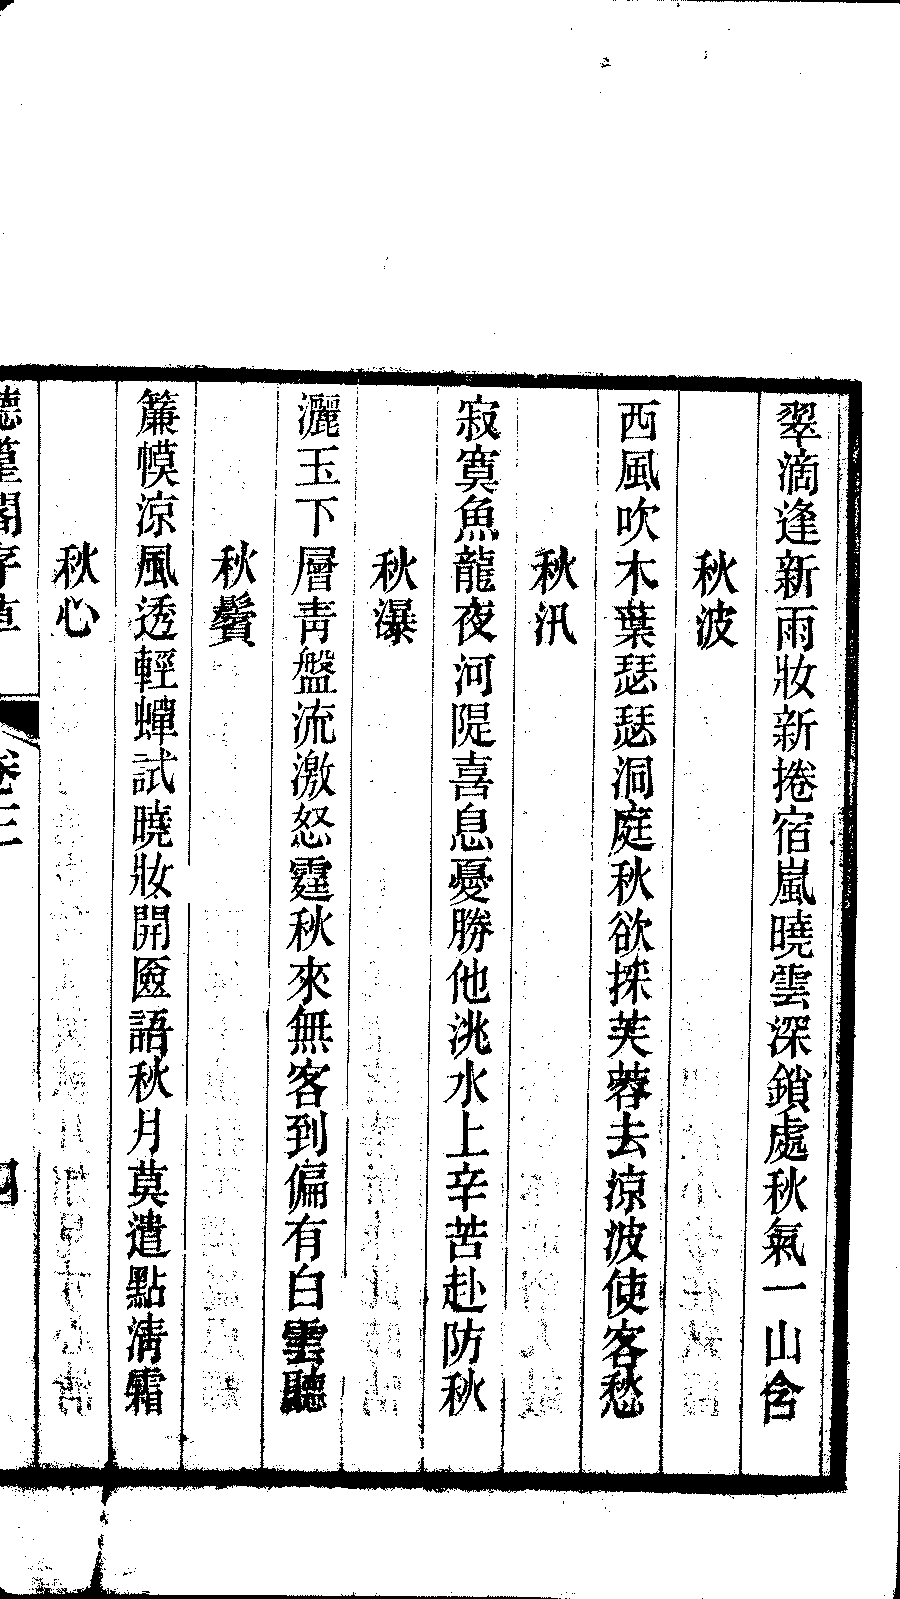 翠滴逢新雨妝新捲宿嵐曉雲深鎖處秋氣一山含
秋波
西風吹木葉瑟瑟洞庭秋欲採芙蓉去涼波使客愁
秋汛
寂寞魚龍夜河隄喜息憂勝他洮水上辛苦赴防秋
秋瀑
灑玉下層青盤流激怒霆秋來無客到偏有白雲聽
秋鬢
簾幙涼風透輕蟬試曉妝開匳語秋月莫遣點淸霜
秋心
聽
閣存草
卷三
四